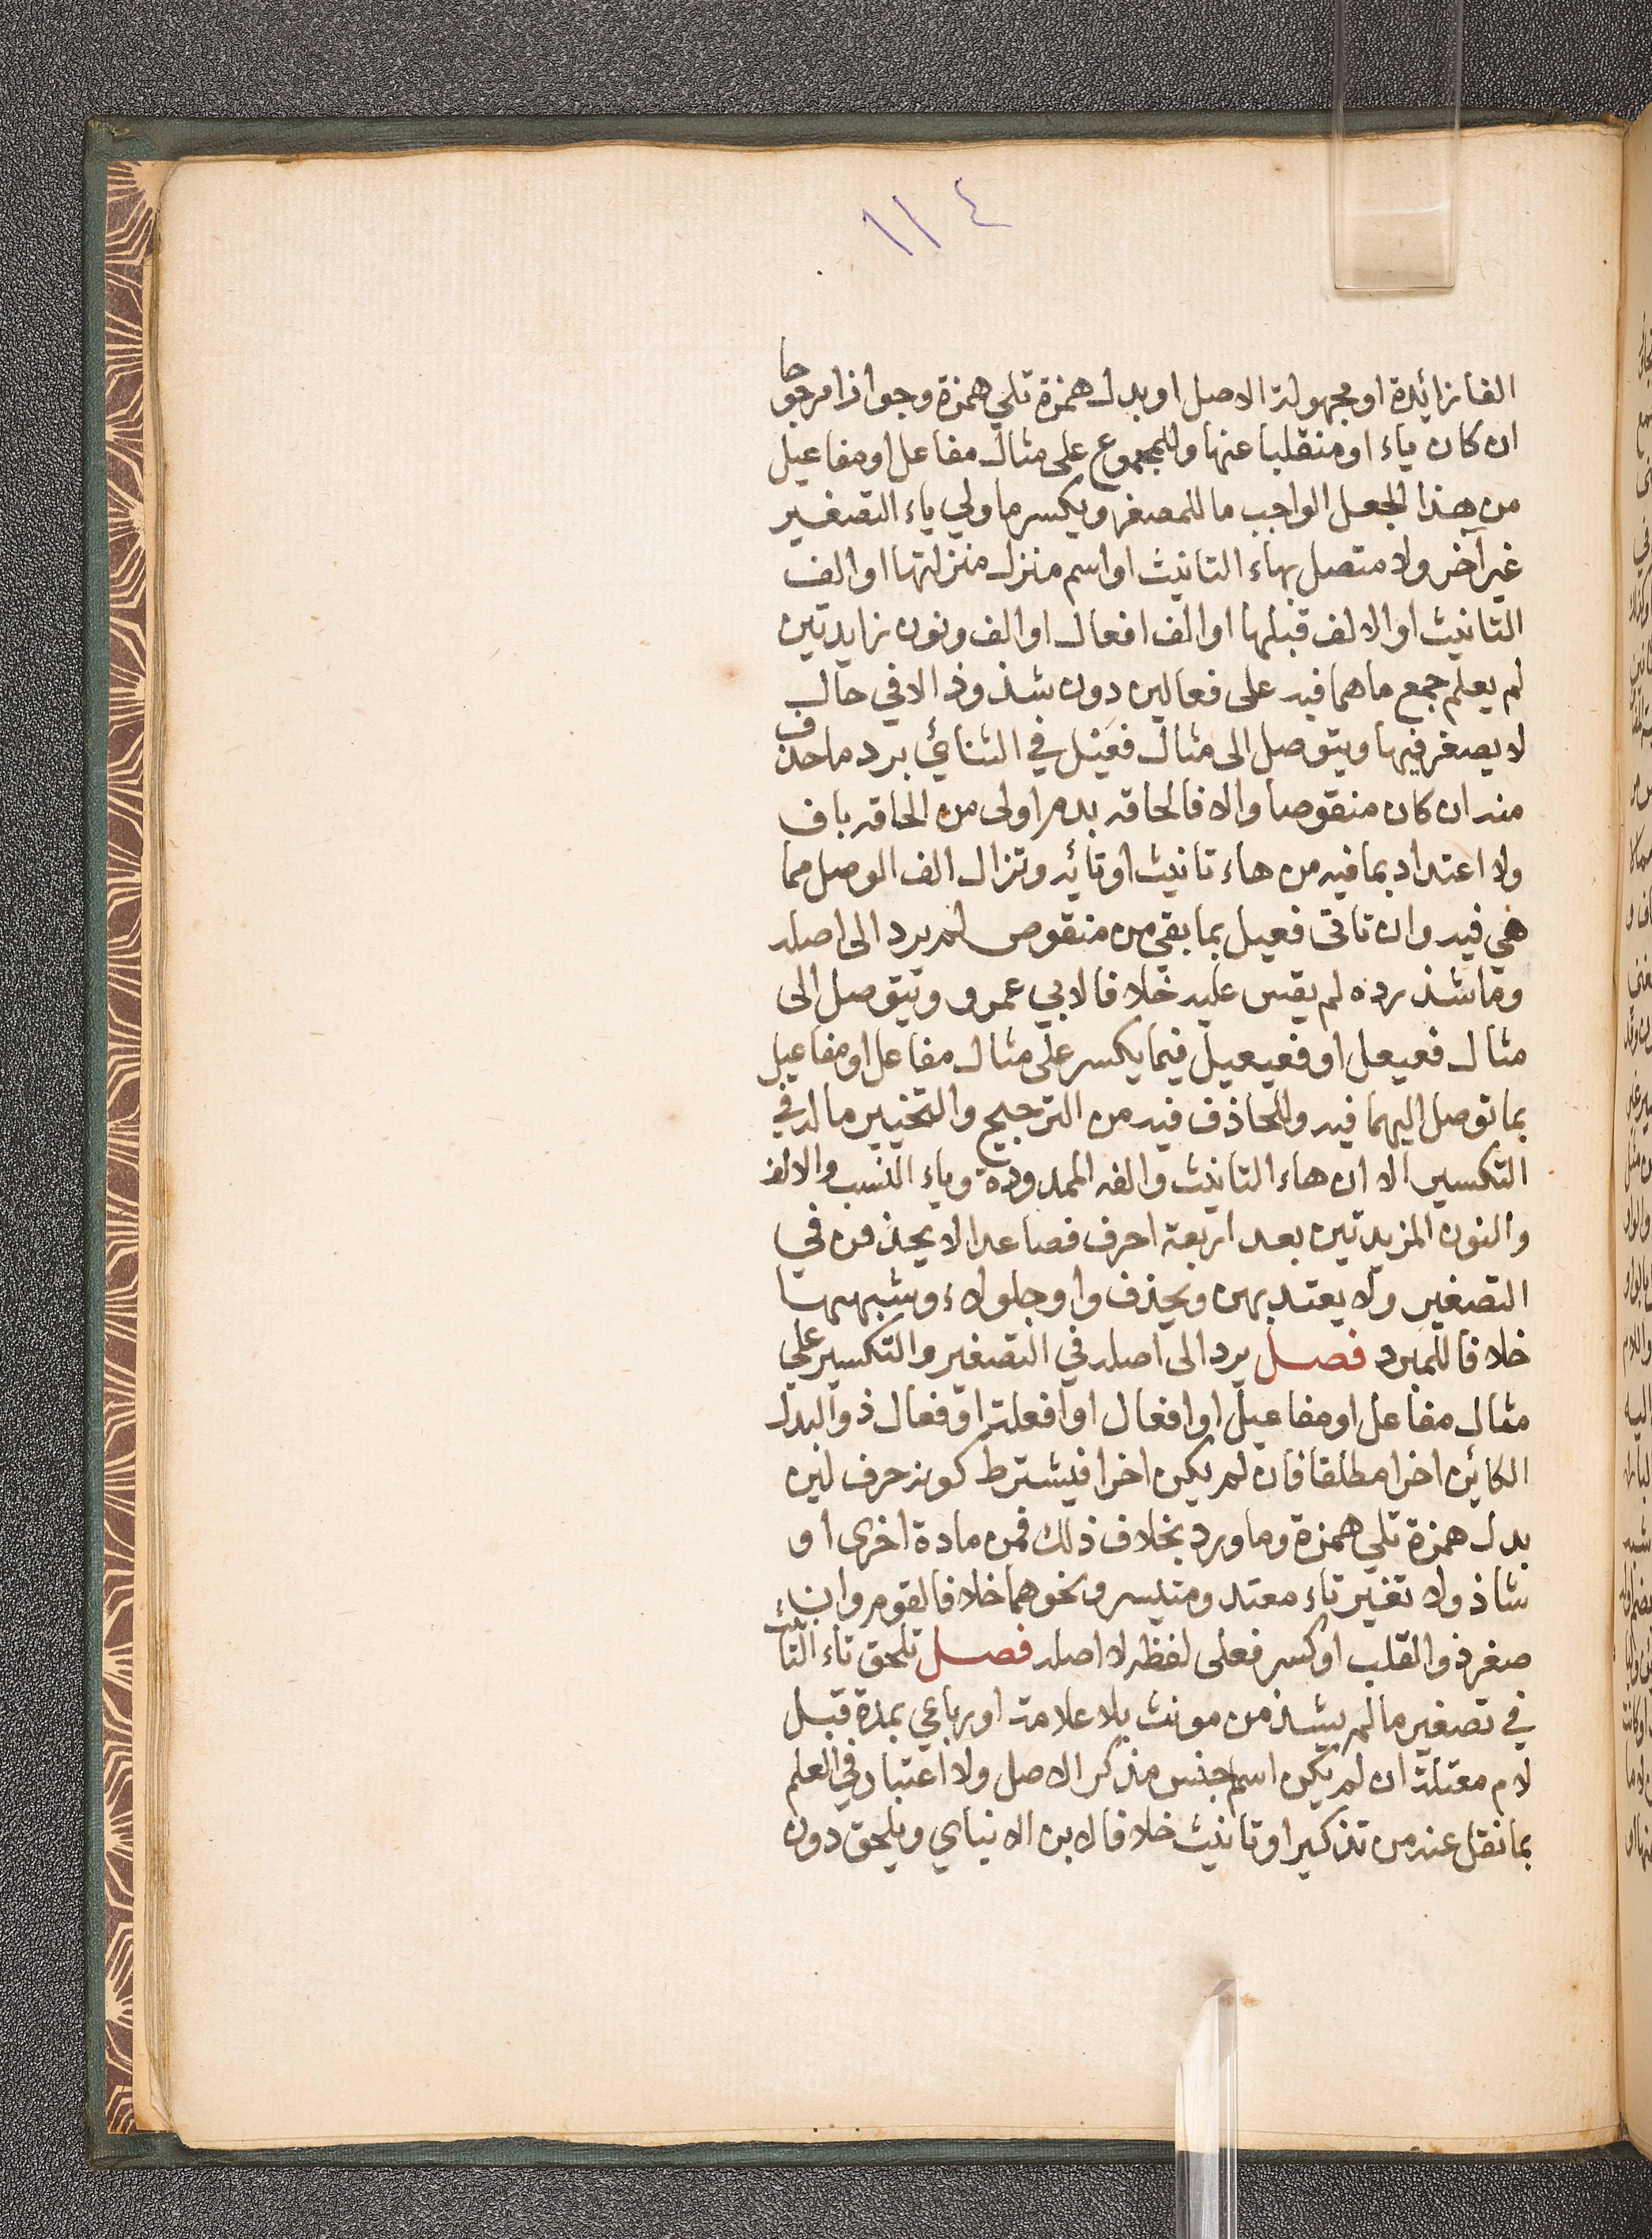 ١١٤
الفا زائدة او مجهولة الاصل او بدل همزة تلي همزة وجوازا مرجوحا
ان كان ياء او منقلبا عنها وللمجموع على مثال مفاعل او مفاعيل
من هذا الجعل الواجب ما للمصغر ويكسر ما ولي ياء التصغير
غير آخر ولا متصل بهاء التانيث او اسم منزل منزلتها او الف
التانيث او الالف قبلها او الف افعال او الف ونون زايدتين
لم يعلم جمع ما هما فيه على فعالين دون شذوذ الا في حال
لا يصغر فيها ويتوصل الى مثال فعيل في الثنائي برد ما حذف
منه ان كان منقوصا والا فالحاقه بدم اولى من الحاقه باف
ولا اعتداد بما فيه من هاء تانيث او تائه وتزال الف الوصل مما
هي فيه وان تاتى فعيل بما بقي من منقوص لم يرد الى اصله
وما شذ رده لم يقس عليه خلافا لابي عمرو ويتوصل الى
مثال فعيعل او فعيعيل فيما يكسر على مثال مفاعل او مفاعيل
بما توصل اليهما فيه وللحاذف فيه من الترجيح والتخيير ما له في
التكسير الا ان هاء التانيث والفه الممدودة وياء النسب والالف
والنون المزيدتين بعد اربعة احرف فصاعدا لا يحذفن في
التصغير ولا يعتد بهن ويحذف واو جلولاء وشبهها
خلافا للمبرد فصل يرد الى اصله في التصغير والتكسير على
مثال مفاعل او مفاعيل او افعال او افعلة او فعال ذو البدل
الكائن اخرا مطلقا فان لم يكن اخرا فيشترط كونه حرف لين
بدل همزة تلي همزة وما ورد بخلاف ذلك فمن مادة اخرى او
شاذ ولا تغير تاء معتد ومتيسر ونحوهما خلافا لقوم وان
صغر ذو القلب او كسر فعلى لفظه لا اصله فصل تلحق تاء التانيث
في تصغير ما لم يشذ من مونث بلا علامة او رباعي بمدة قبل
لام معتلة ان لم يكن اسم جنس مذكر الاصل ولا اعتبار في العلم
بما نقل عنه من تذكير او تانيث خلافا لابن الانباي ويلحق دون